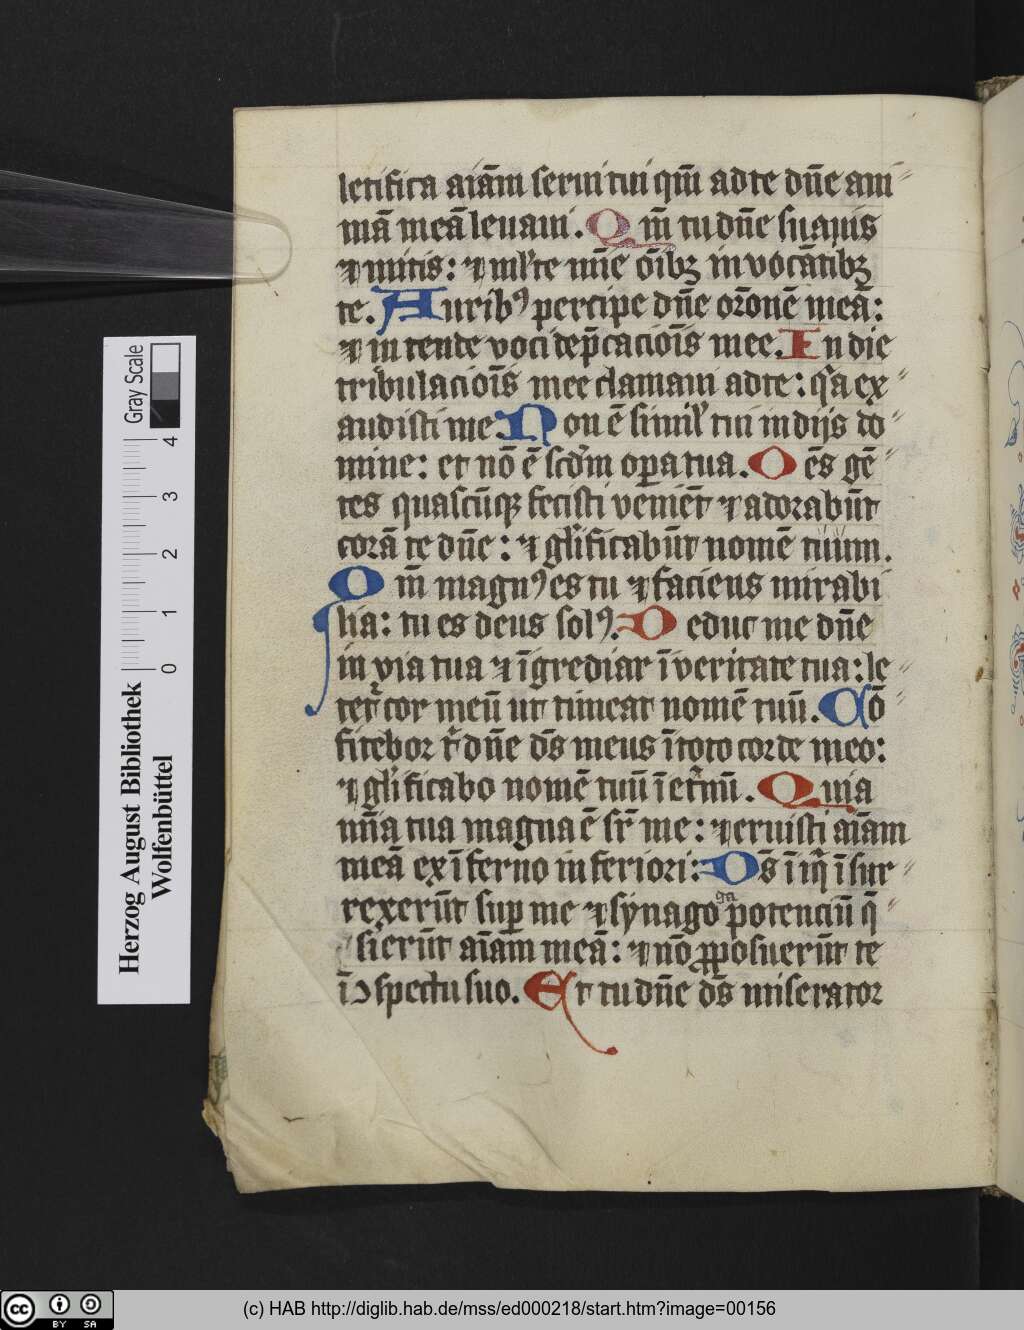 letifica aīam serui tui qm̄ ad te dn̄e ani
mā meā leuaui. Qm̄ tu dn̄e suauis
⁊ mitis: ⁊ ml̓te mīe oīb⁊ inuocātib⁊
te. Aurib⁹ percipe dn̄e or̄onē meā:
⁊ intende voci dep̄cacioīs mee. In die
tribulacioīs mee clamaui ad te: qͣa ex
audisti me. Non ē simil̓ tui in dijs do
mine: et nō ē scd̄m oꝑa tua. Oēs gē
tes quascūqꝫ fecisti veniēt ⁊ adorabūt
corā te dn̄e: ⁊ gl̓ificabūt nomē tuum.
Qm̄ magn⁹ es tu ⁊ faciens mirabi
lia: tu es deus sol⁹. Deduc me dn̄e
in via tua ⁊ īgrediar ī veritate tua: le
tet̓ cor meū ut timeat nomē tuū. Cō
fitebor t̓ dn̄e ds̄ meus ī toto corde meo:
⁊ gl̓ificabo nomē tuū ī et̓nū. Quia
mīa tua magna ē sr̄ me: ⁊ eruisti aīam
meā ex īferno inferiori: Ds̄ īiq̄ īsur
rexerūt suꝑ me ⁊ synago ga potenciū q̄
sierūt aīam meā: ⁊ nō ꝓposuerūt te
ī ꝯspectu suo. Et tu dn̄e ds̄ miserator
Herzog August Bibliothek
Wolfenbüttel
0 1 2 3 4
Gray Scale
(c) HAB http://diglib.hab.de/mss/ed000218/start.htm?image=00156
cc BY SA